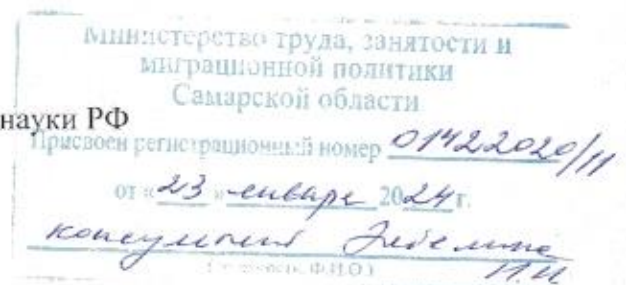 Министерство труда, занятости и
миграционной политики
Самарской области
науки РФ
Присвоен регистрационный номер 01422020/11
от «23» января 2024 г.
консультант
И.И